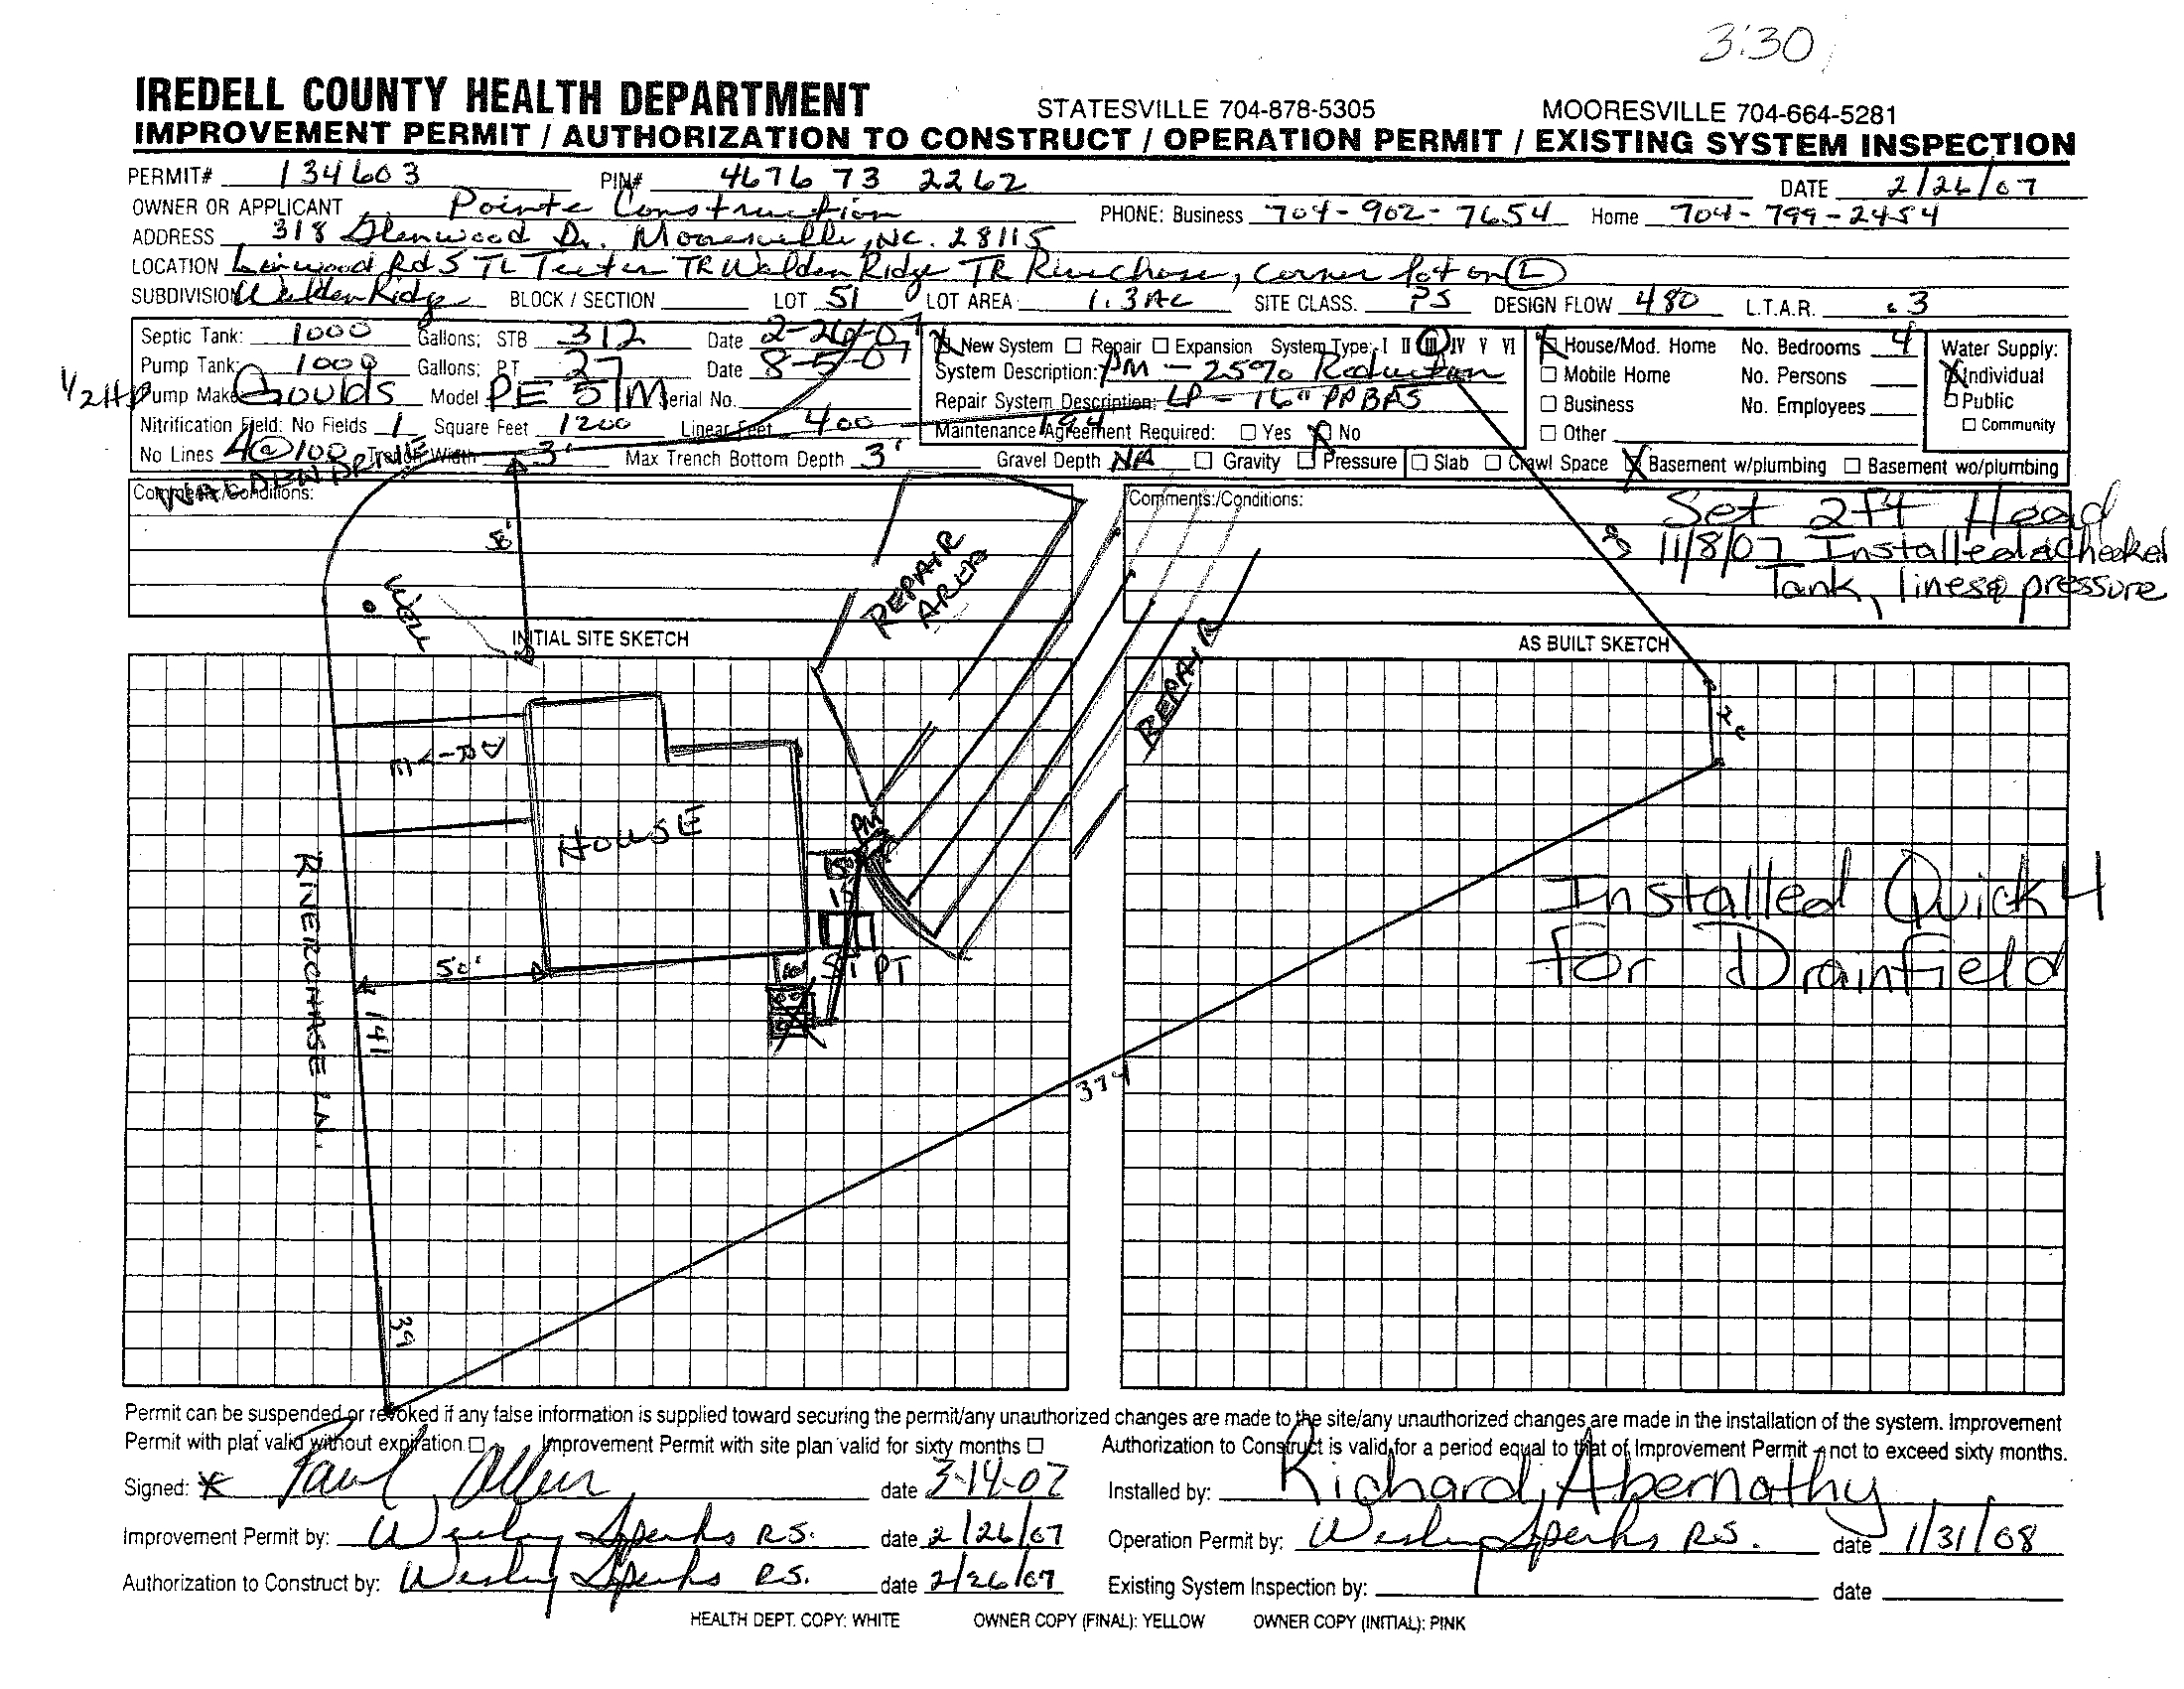 3:30
IREDELL COUNTY HEALTH DEPARTMENT STATESVILLE 704-878-5305 MOORESVILLE 704-664-5281
IMPROVEMENT PERMIT / AUTHORIZATION TO CONSTRUCT / OPERATION PERMIT / EXISTING SYSTEM INSPECTION
PERMIT# 134603 PIN# 4676 73 2262 DATE 2/26/07
OWNER OR APPLICANT Pointe Construction PHONE: Business 704-902-7654 Home 704-799-2454
ADDRESS 318 Glenwood Dr. Mooresville, NC. 28115
LOCATION Linwood Rd S TL Teeter TR Walden Ridge TR Riverchase, corner lot on L
SUBDIVISION Walden Ridge BLOCK / SECTION LOT 51 LOT AREA 1.3 AC SITE CLASS. PS DESIGN FLOW 480 L.T.A.R. .3
Septic Tank: 1000 Gallons; STB 312 Date 2-26-07
Pump Tank: 1000 Gallons; PT 27 Date 8-5-07
1/2 HP Pump Make Goulds Model PE 51M Serial No.
Nitrification Field: No Fields 1 Square Feet 1200 Linear Feet 400
No Lines 4@100 Trench Width 3' Max Trench Bottom Depth 3' Gravel Depth NA
New System Repair Expansion System Type: I II III IV V VI
System Description: PM - 25% Reduction
Repair System Description: LP - 16" PPBPS
194
Maintenance Agreement Required: Yes No
Gravity Pressure Slab Crawl Space Basement w/plumbing Basement wo/plumbing
House/Mod. Home No. Bedrooms 4
Mobile Home No. Persons
Business No. Employees
Other
Water Supply:
Individual
Public
Community
WALDEN DRIVE
Comments:/Conditions:
Comments:/Conditions:
Set 2ft Head
11/8/07 Installed & Checked
Tank, lines & pressure
50'
WELL
REPAIR
AREA
REPAIR
INITIAL SITE SKETCH
AS BUILT SKETCH
HOUSE
PM
15
ST PT
50'
RIVERCHASE LN.
141
374
39
Installed Quick 4
For Drainfield
Permit can be suspended or revoked if any false information is supplied toward securing the permit/any unauthorized changes are made to the site/any unauthorized changes are made in the installation of the system. Improvement
Permit with plat valid without expiration Improvement Permit with site plan valid for sixty months Authorization to Construct is valid for a period equal to that of Improvement Permit - not to exceed sixty months.
Signed: Paul Allen date 3-14-07 Installed by: Richard Abernathy
Improvement Permit by: Wesley Sperks R.S. date 2/26/07 Operation Permit by: Wesley Sperks R.S. date 1/31/08
Authorization to Construct by: Wesley Sperks R.S. date 2/26/07 Existing System Inspection by: date
HEALTH DEPT. COPY: WHITE OWNER COPY (FINAL): YELLOW OWNER COPY (INITIAL): PINK